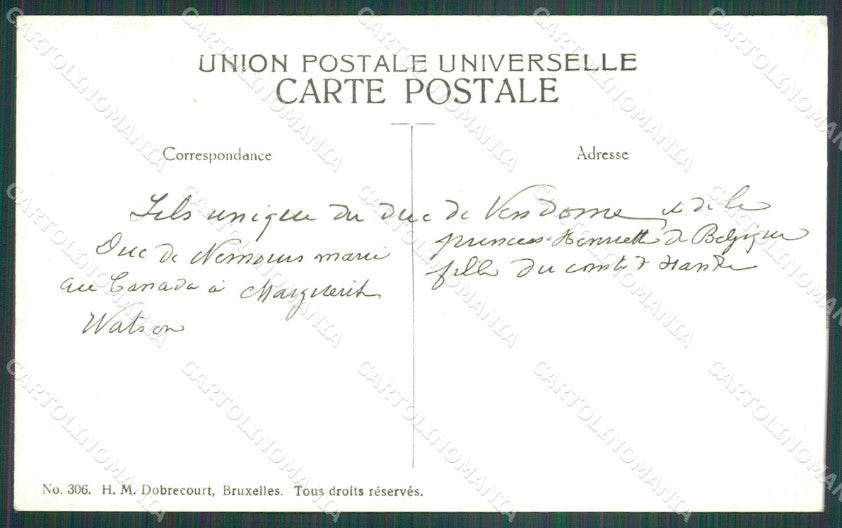 UNION POSTALE UNIVERSELLE
CARTE POSTALE
Correspondance
Adresse
Fils unique du duc de Vendome et de la
princess Henriett de Belgique
fille du comte d Flandre
Duc de Nemours marié
au Canada à Marguerit
Watson
No. 306. H. M. Dobrecourt, Bruxelles. Tous droits réservés.
CARTOLINOMANIA